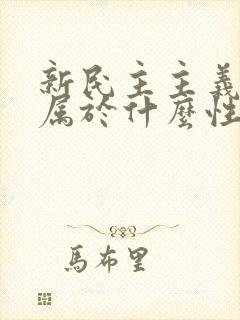 新民主主義
属於什麼性
馬布里